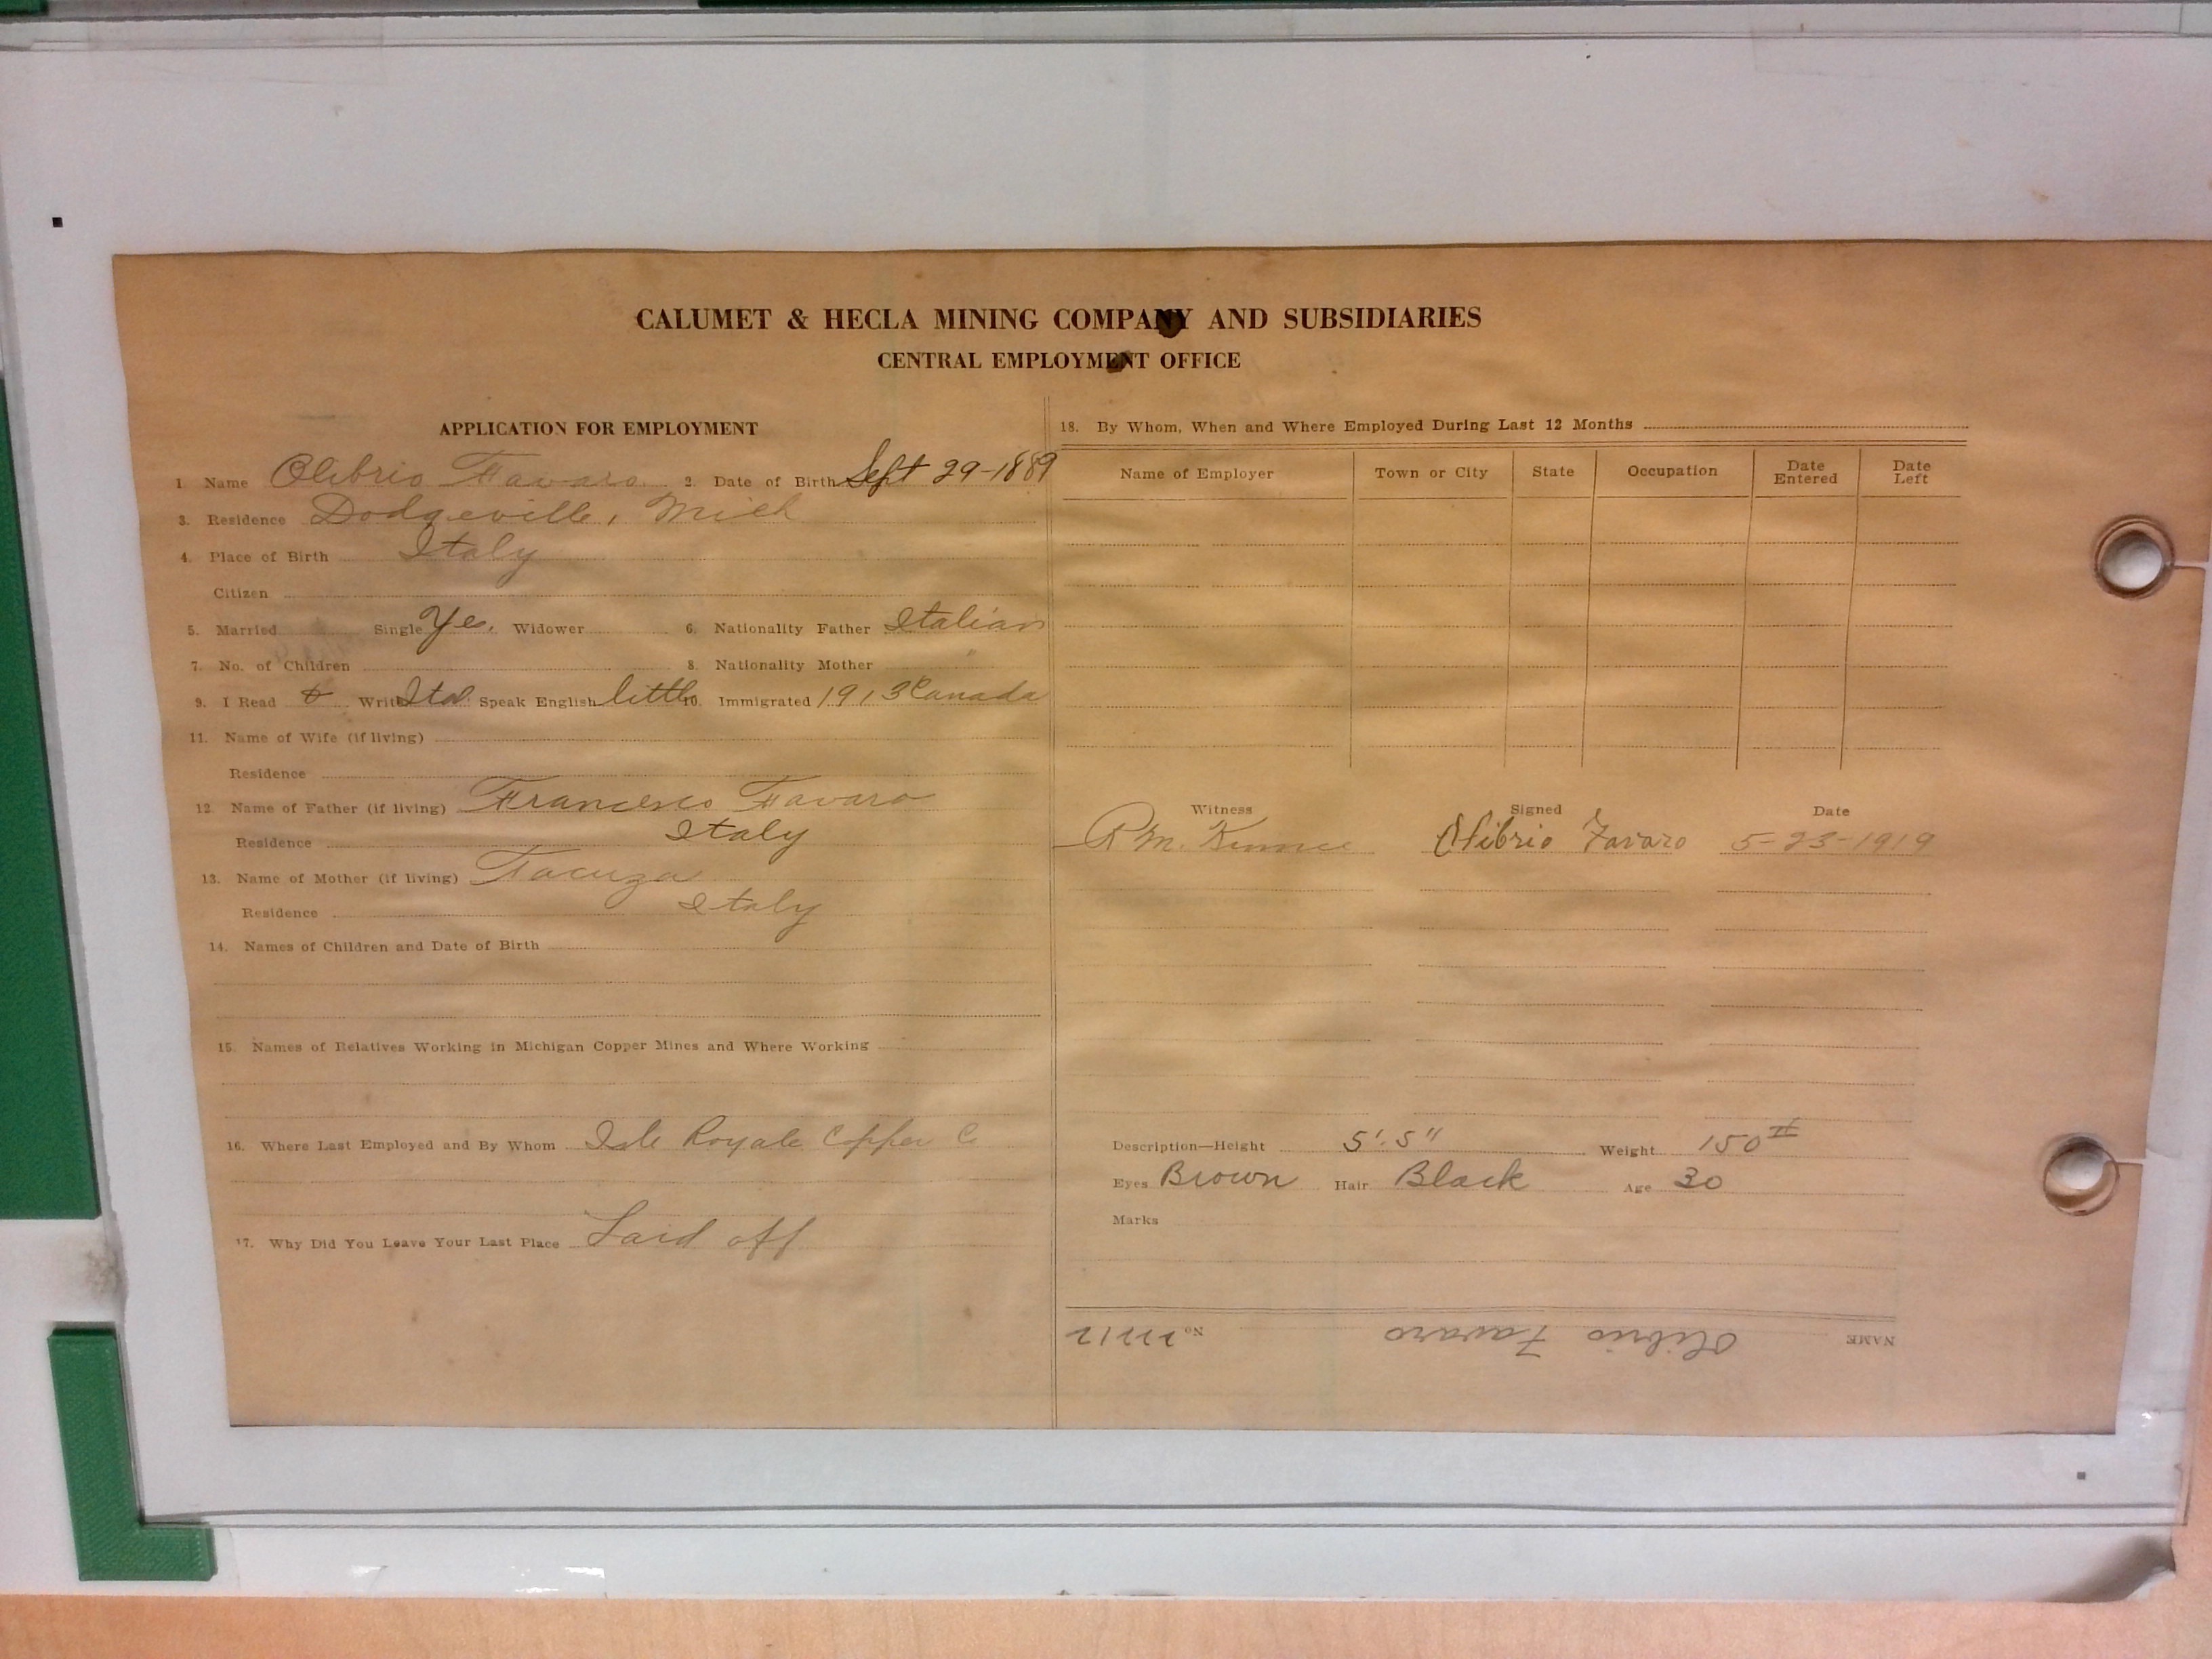 CALUMET & HECLA MINING COMPANY AND SUBSIDIARIES
CENTRAL EMPLOYMENT OFFICE
APPLICATION FOR EMPLOYMENT
1 Name Olibrio Favaro 2. Date of Birth Sept 29-1889
3. Residence Dodgeville, Mich
4. Place of Birth Italy
Citizen
5. Married Single Yes. Widower 6. Nationality Father Italian
7. No. of Children 8. Nationality Mother "
9. I Read & Write Ital. Speak English little 10. Immigrated 1913 Canada
11. Name of Wife (if living)
Residence
12. Name of Father (if living) Francesco Favaro
Residence Italy
13. Name of Mother (if living)
Residence Italy
14. Names of Children and Date of Birth
15. Names of Relatives Working in Michigan Copper Mines and Where Working
16. Where Last Employed and By Whom Isle Royale Copper Co
17. Why Did You Leave Your Last Place Laid off
18. By Whom, When and Where Employed During Last 12 Months
Name of Employer Town or City State Occupation Date Entered Date Left
Witness Signed Date
R M. Olibrio Favaro 5-23-1919
Description—Height 5'.5" Weight 150 #
Eyes Brown Hair Black Age 30
Marks
NAME Olibrio Favaro No.